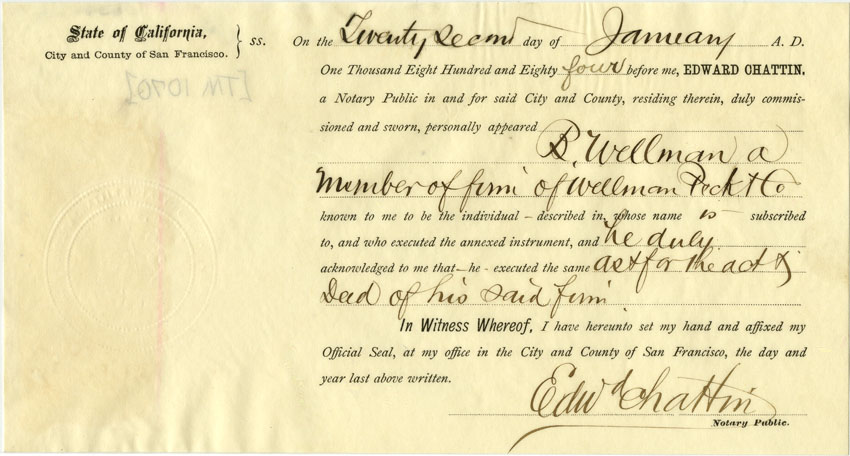 State of California,
City and County of San Francisco. } ss.
[TN 1070]
On the Twenty second day of January A. D.
One Thousand Eight Hundred and Eighty four before me, EDWARD CHATTIN,
a Notary Public in and for said City and County, residing therein, duly commis-
sioned and sworn, personally appeared
B. Wellman a
Member of firm of Wellman Peck & Co
known to me to be the individual - described in, whose name is subscribed
to, and who executed the annexed instrument, and he duly
acknowledged to me that - he - executed the same as & for the act &
Deed of his said firm
In Witness Whereof, I have hereunto set my hand and affixed my
Official Seal, at my office in the City and County of San Francisco, the day and
year last above written.
Edwd Chattin
Notary Public.